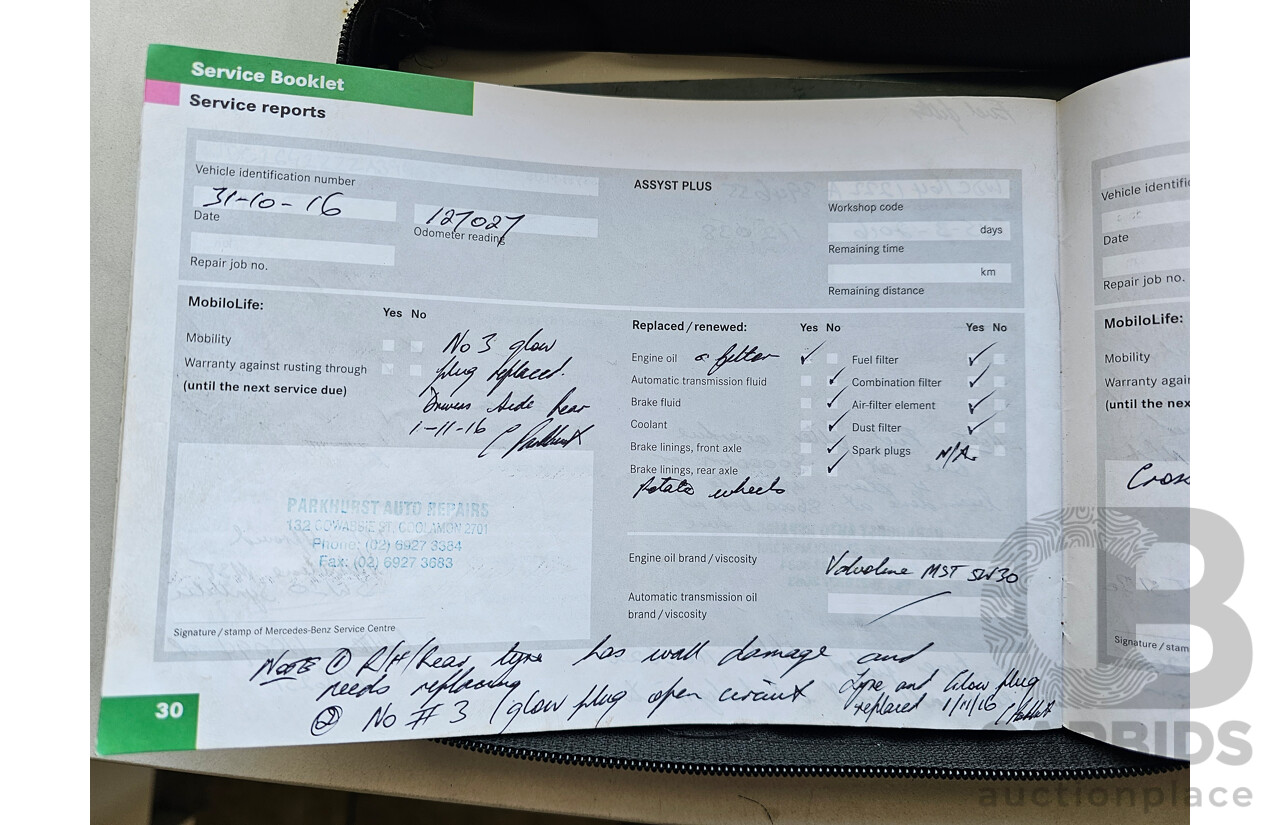 Service Booklet
Service reports
Vehicle identification number
31-10-16
Date
127027
Odometer reading
Repair job no.
ASSYST PLUS
Workshop code
days
Remaining time
km
Remaining distance
MobiloLife:
Yes No
Mobility
Warranty against rusting through
(until the next service due)
No 3 glow
plug replaced.
Drivers side rear
1-11-16
PARKHURST AUTO REPAIRS
132 COWABBIE ST, COOLAMON 2701
Phone: (02) 6927 3384
Fax: (02) 6927 3683
Signature/stamp of Mercedes-Benz Service Centre
Replaced/renewed:
Yes No
Yes No
Engine oil & filter
Automatic transmission fluid
Brake fluid
Coolant
Brake linings, front axle
Brake linings, rear axle
Rotate wheels
Fuel filter
Combination filter
Air-filter element
Dust filter
Spark plugs N/A
Engine oil brand/viscosity
Valvoline MST 5W30
Automatic transmission oil
brand/viscosity
NOTE ① R/H/Rear tyre has wall damage and
needs replacing
② No # 3 glow plug open circuit
Tyre and Glow plug
replaced 1/11/16
30
Vehicle identifi
Date
Repair job no.
MobiloLife:
Mobility
Warranty agai
(until the nex
Cross
Signature/stam
CARBIDS
auctionplace